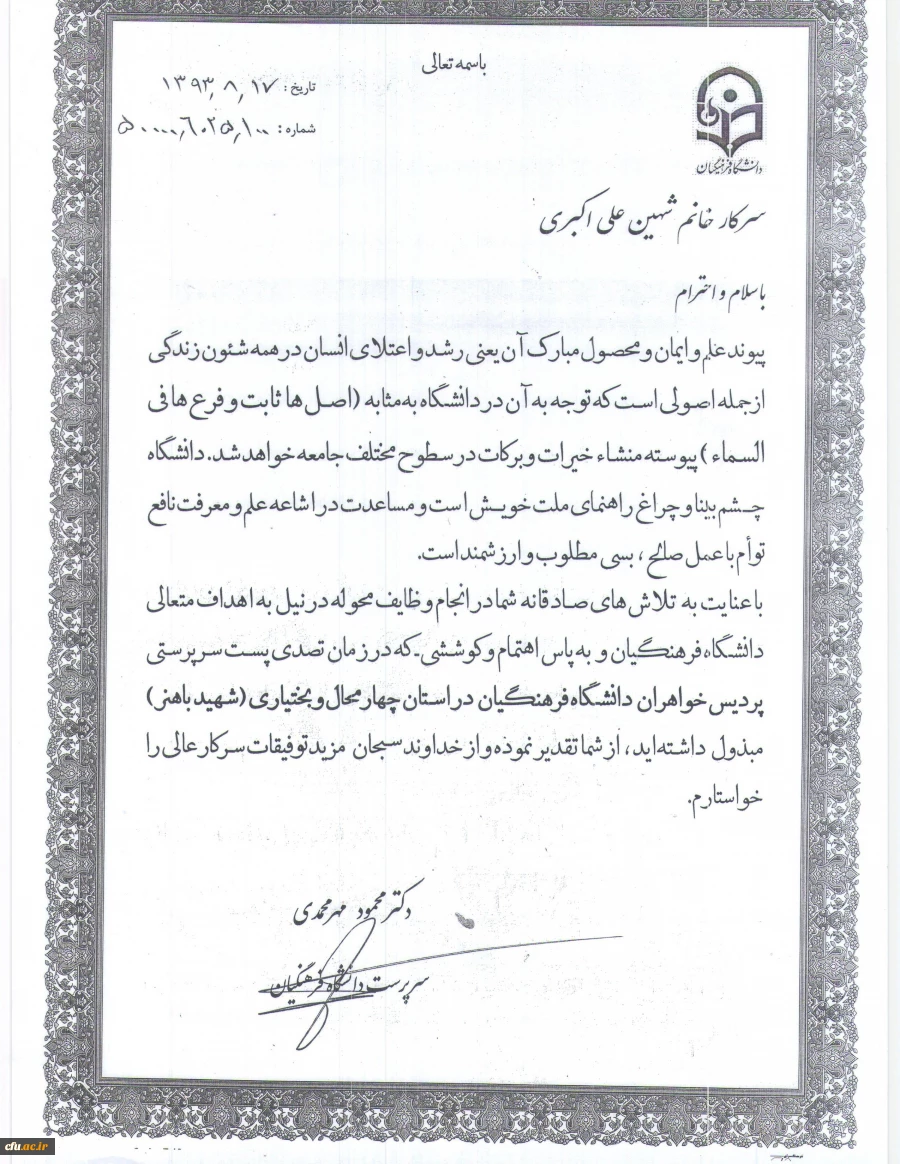 باسمه تعالی
تاریخ: ۱۳۹۳٫۸٫۱۷
شماره: ۵۰۰۰۰٫۶۰۲۵٫۱۰۰
دانشگاه فرهنگیان
سرکار خانم شهین علی اکبری
باسلام و احترام
پیوند علم و ایمان و محصول مبارک آن یعنی رشد و اعتلای انسان در همه شئون زندگی
از جمله اصولی است که توجه به آن در دانشگاه به مثابه (اصل ها ثابت و فرع ها فی
السماء) پیوسته منشاء خیرات و برکات در سطوح مختلف جامعه خواهد شد. دانشگاه
چشم بینا و چراغ راهنمای ملت خویش است و مساعدت در اشاعه علم و معرفت نافع
توأم با عمل صالح، بسی مطلوب و ارزشمند است.
با عنایت به تلاش های صادقانه شما در انجام وظایف محوله در نیل به اهداف متعالی
دانشگاه فرهنگیان و به پاس اهتمام و کوششی که در زمان تصدی پست سرپرستی
پردیس خواهران دانشگاه فرهنگیان در استان چهار محال و بختیاری (شهید باهنر)
مبذول داشته اید، از شما تقدیر نموده و از خداوند سبحان مزید توفیقات سرکار عالی را
خواستارم.
دکتر محمود مهرمحمدی
سرپرست دانشگاه فرهنگیان
cfu.ac.ir